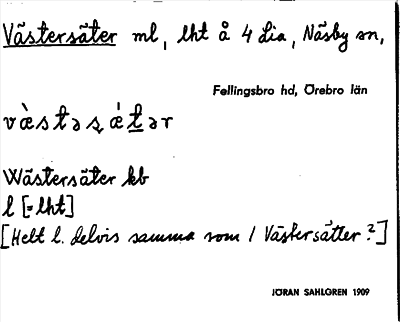 Västersäter ml, lht å 4 dia, Näsby sn,
Fellingsbro hd, Örebro län
væ̀stəṣǽtər
Wästersäter kb
l [= lht]
[Helt l. delvis samma som 1 Västersätter?]
JÖRAN SAHLGREN 1909